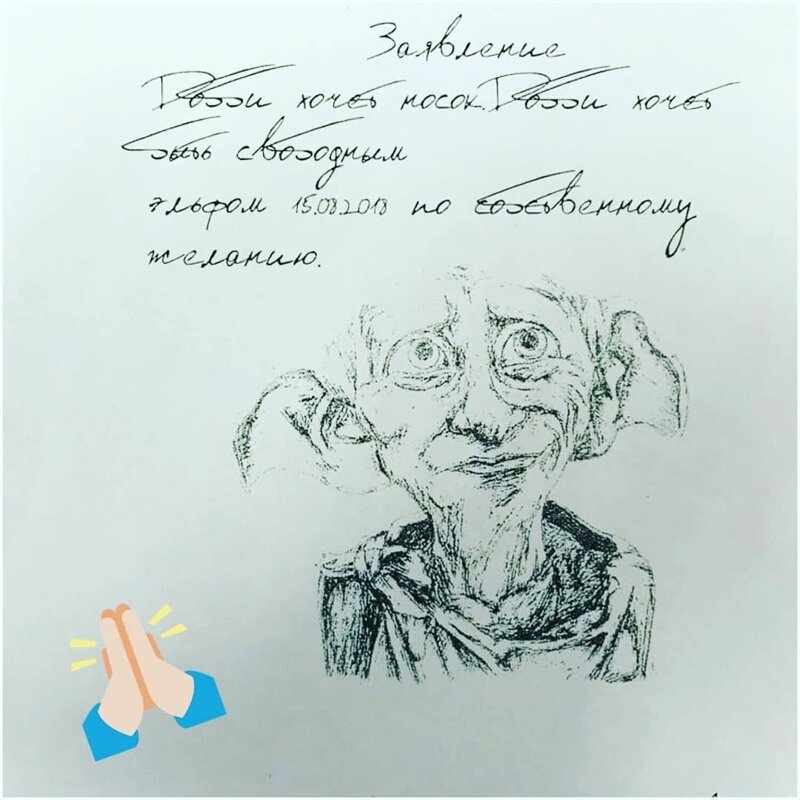 Заявление
Добби хочет носок. Добби хочет
быть свободным
эльфом 15.08.2018 по собственному
желанию.